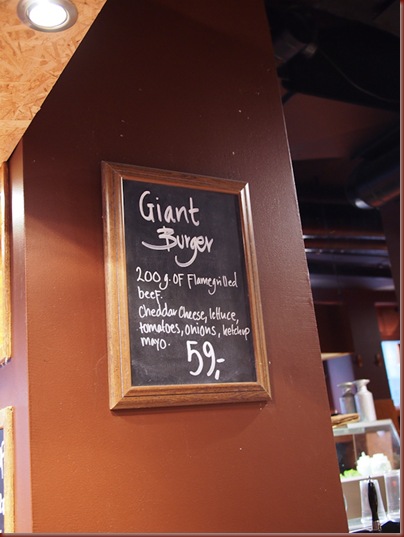 Giant
Burger
200g. OF Flamegrilled
beef.
Cheddar Cheese, lettuce,
tomatoes, onions, ketchup
mayo.
59,-